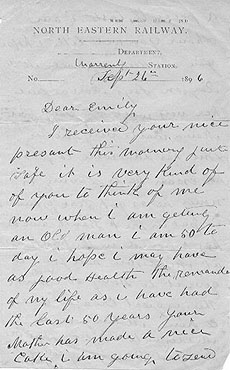 NORTH EASTERN RAILWAY.
DEPARTMENT,
STATION.
No Sept 26th 1896
Dear Emily
I received your nice
presant this morning
safe it is very kind of
of you to think of me
now when i am geting
an old man i am 50 to
day i hope i may have
as good Health the remainder
of my life as i have had
the last 50 years your
Mother has made a nice
Cake i am going to send